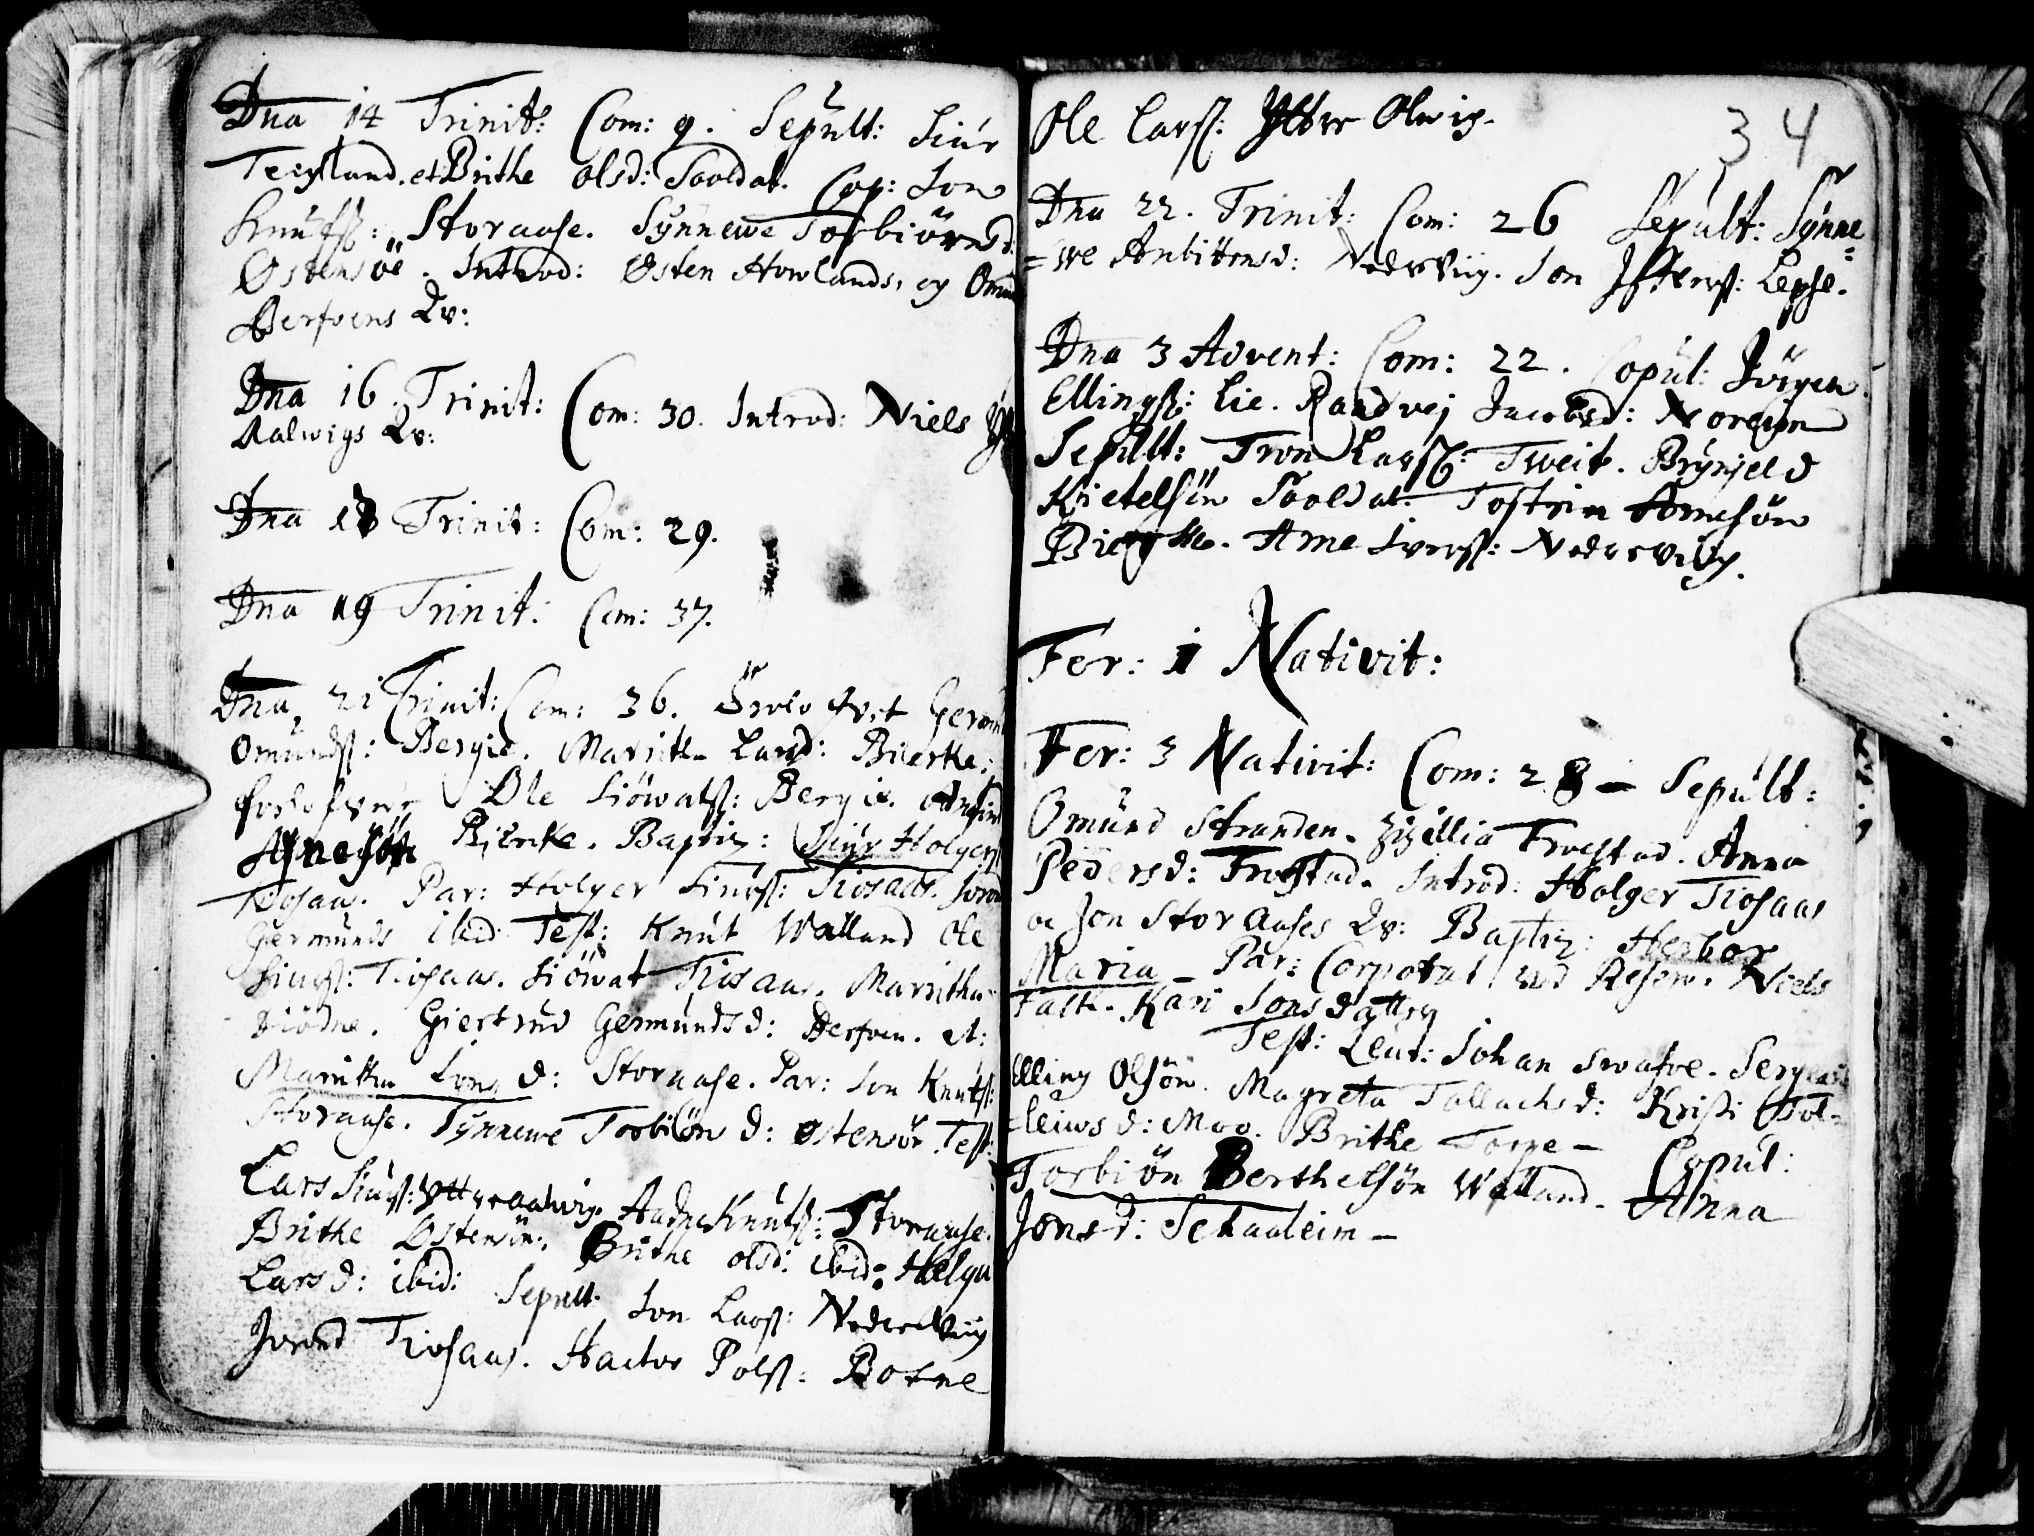 Dna 14 Trinit: Com: 9. Sepult: Siur
Teigland. et Brithe olsd: Sooldat. Cop: Jon
Knutsß: Storaase. Synnewe Torbiörnsd:
Østensöe. Introd: Østen Howlands, og Omun
Berfvens Qv:
Dna 16. Trinit: Com: 30. Introd: Niels
Aalwigs Qv:
Dna 18 Trinit: Com: 29.
Dna 19 Trinit: Com: 37.
Dna 21 Trinit: Com: 36. Germun
Omundsß: Bergie. Maritha Larsd: Bierke:
Ole Siöwatsß: Bergie.
Arnesön Bierke. Baptiz: Siur Holgersß
Tiosaas. Par: Holger Siursß: Tiosaas. Joron
Germunds ibid: Test: Knut Walland Ole
Siursß: Tiosaas. Siöwat Tiosaas. Maritha
Giertrud Germundsd: Berfven. et:
Maritha Jons d: Storaase. Par: Jon Knutsß:
Storaase. Synnewe Torbiörn d: Østensöe. Test:
Lars Siursß: Yttreaalwig. Knutsß: Storaase.
Brithe Østensöe. Brithe olsd: ibid: Helga
Lars d: ibid: Sepult. Jon Larsß: Nedrewiig
Jorond Tiosaas. Hactor Polsß: Botne
34
Ole Larsß: Ytter Olwig.
Dna 22. Trinit: Com: 26 Sepult: Synne
=we Anbittensd: Nedrewiig. Jon Lepse.
Dna 3 Advent: Com: 22. Copul: Jörgen
Ellingsß: Lie. Randvej Jacobsd: Noreim
Sepult: Tron Larsß: Tweit. Brynjeld
Kietelsön Sooldat. Tostein Arnesön
Bierke. Arne Iversß: Nedrewiig.
Fer: 1 Nativit:
Fer: 3 Nativit: Com: 28 - Sepult:
Omund Stranden. Zizillia Froestad. Anna
Pedersd: Froestad. Introd: Holger Tiosaas
oc Jon Storaases Qv: Baptiz: Herbor
Maria - Par: Corporal wed Reserv. Niels
Falk. Kari Jonsdatter
Test: Leut: Johan Swatve. Sergeant
Elling Olsön. Magreta Tollachsd: Kristi Tol-
=leiws d: Moo. Brithe Torpe - Copul:
Torbiön Berthelsön Walland. Anna
Jonsd: Schaaleim -